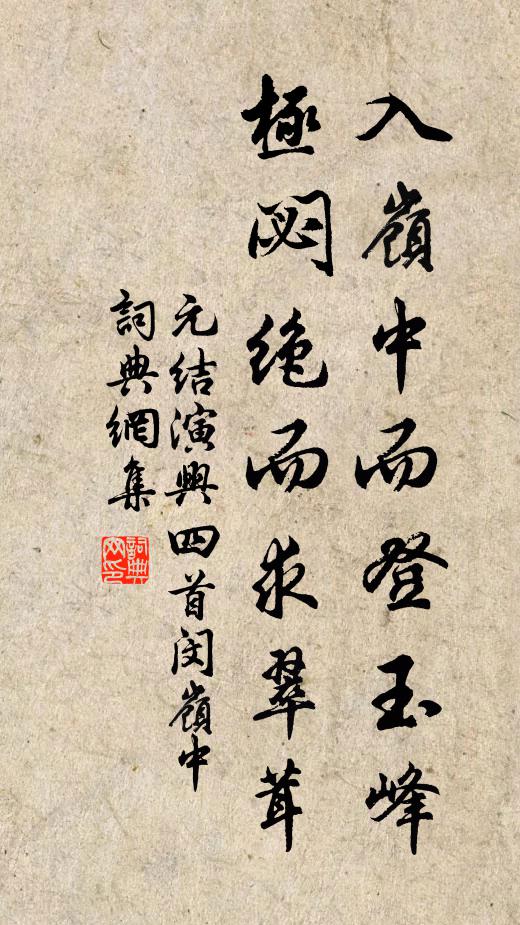 入嶺中而登玉峰
極閟絶而求翠茸
元结演興四首閔嶺中
詞典網集
詞典
网印